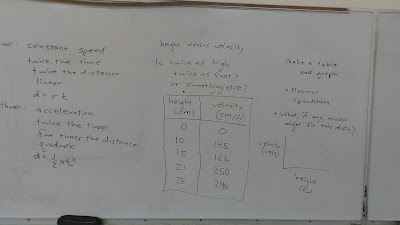 constant speed
twice the time
twice the distance
linear
d = v t
three: acceleration
twice the time
four times the distance
quadratic
d = ½ at²
height versus velocity
Is twice as high
twice as fast?
or something else?
height (cm) velocity (cm/s)
0 0
10 145
15 162
21 250
25 246
make a table
and graph
• Desmos
Spreadsheet
• What, if any, model
might fit this data?
velocity
(cm/s)
height
(cm)